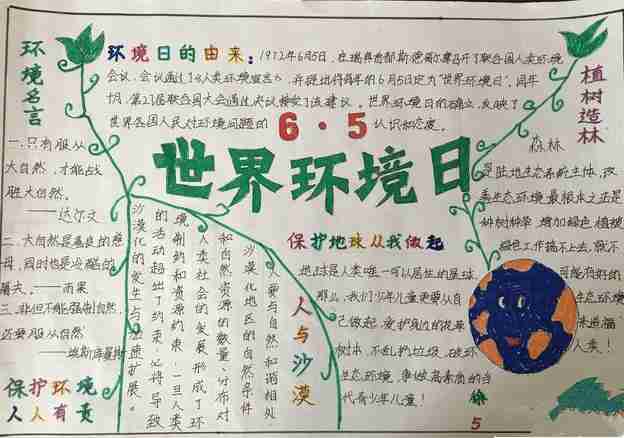 环境名言
一.只有服从
大自然,才能战
胜大自然。
——达尔文
二.大自然是善良的慈
母,同时也是冷酷的
屠夫。——雨果
三.非但不能强制自然,
还要服从自然
——埃斯库罗斯
保护环境
人人有责
环境日的由来:1972年6月5日,在瑞典首都斯德哥尔摩召开了联合国人类环境
会议,会议通过了《人类环境宣言》,并提出将每年的6月5日定为“世界环境日”。同年
10月,第27届联合国大会通过决议接受了该建议。世界环境日的确立,反映了
世界各国人民对环境问题的
6·5
认识和态度。
世界环境日
植树造林
森林
是陆地生态系统主体,改
善生态环境,最根本之还是
种树种草,增加绿色,植被
绿色工作搞不上去,就不
可能有好的
生态环境
来造福
人类!
保护地球从我做起
地球是人类唯一可以居住的星球,
那么,我们少年儿童更要从自
己做起,爱护身边的花草
树木,不乱扔垃圾,破坏
生态环境,争做高素质的当
代青少年儿童!
人与沙漠
人要与自然和谐相处
沙漠化地区的自然条件
和自然资源的数量、分布对
人类社会的发展形成了环
境制约和资源约束,一旦人类
的活动超出了约束,必将导致
沙漠化的发生与加速扩展。
5